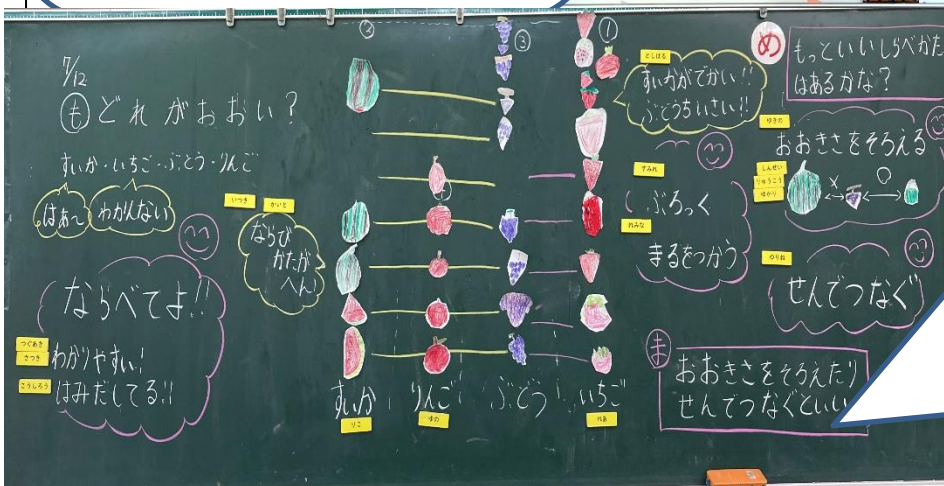 7/12
も どれがおおい?
すいか・いちご・ぶどう・りんご
はぁ~
わかんない
ならべてよ!!
つぐあき
さつき
わかりやすい!
こうしろう
はみだしてる!!
いつき
かいと
ならび
かたが
へん!
②
③
①
すいか
りんご
ぶどう
いちご
りこ
ゆの
れあ
としはる
すいかがでかい!!
ぶどうちいさい!!
すみれ
れみな
ぶろっく
まるをつかう
め
もっといいしらべかた
はあるかな?
ゆきの
おおきさをそろえる
しんせい
りゅうこう
ゆかり
× ○
のりね
せんでつなぐ
ま
おおきさをそろえたり
せんでつなぐといい